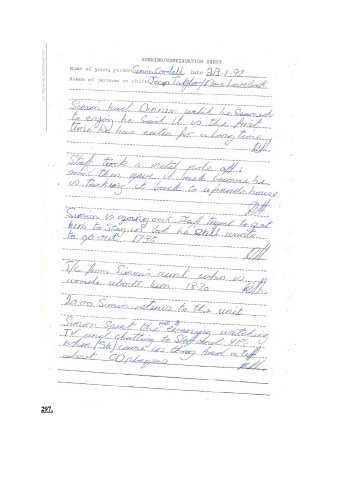 NURSING/CONTINUATION SHEET
Name of young person Simon Cordell Date 28.1.97
Names of persons on shift Joan Taylor/Dave
Simon had Dinner which he seemed
to enjoy he said it is the first
time he has eaten for a long time
Staff took a metal pole off
and then gave it back because he
is taking it back to a friends house
Simon is going out Staff tryed to get
him to stay in but he still wants
to go out 1735
T/C from Simon's aunt who is
worried about him 1820
20.00 Simon returns to the unit
Simon spent the rest of evening watching
TV and chatting to Staff and YPC
when (SW) came in they had a
about CD players
297.